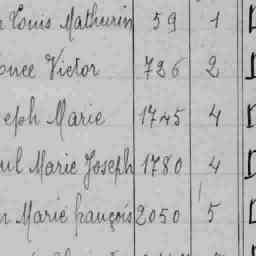 Louis Mathurin 59 1
Victor 726 2
eph Marie 1745 4
ul Marie Joseph 1780 4
n Marie françois 2050 5